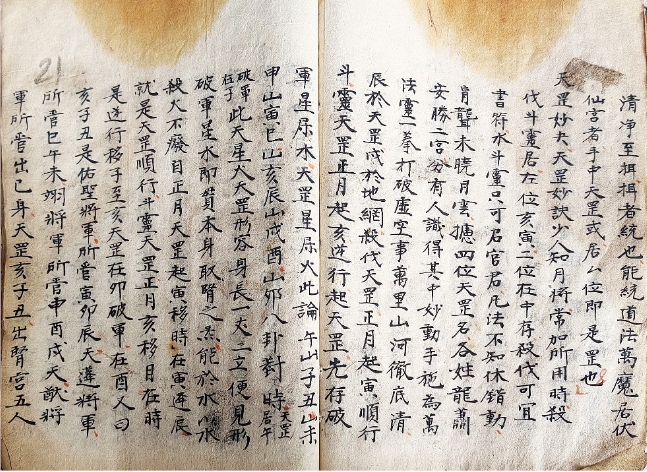 清净至揖揖者統也能統道法萬魔君伏
仙宫者手中天罡或居公位即是罡也
天罡妙夬天罡妙訣少人知月將常加所用時殺
伐斗靈居左位亥寅二位在中存殺伐可宜
書符水斗靈只可君官君凡法不知休錯動
肓聾未曉月雲摅四位天罡名各姓龍蕭
安勝二宫分有人識得其中妙動手施為萬
法靈一拳打破虚空事萬里山河徹底清
辰於天罡戍於地網殺伐天罡正月起寅順行
斗靈天罡正月起亥逆行起天罡先存破
軍星屬水天罡星屬火此論午山子丑山未
申山寅巳山亥辰山戍酉山夘八卦對時天罡居午
破軍在子此天星大天罡形容身長一丈二立便見形
破軍星水即質本身取腎之炁能於水水
殺火不廢目正月天罡起寅移時在寅逆辰
就是天罡順行斗靈天罡正月亥移目在時
是逆行移子至亥天罡在夘破軍在酉又曰
亥子丑是佑聖將軍所管寅夘辰天蓬將軍
所管巳午未翊將軍所管申酉戍天猷將
軍所管出巳身天罡亥子丑出腎宫五人
21